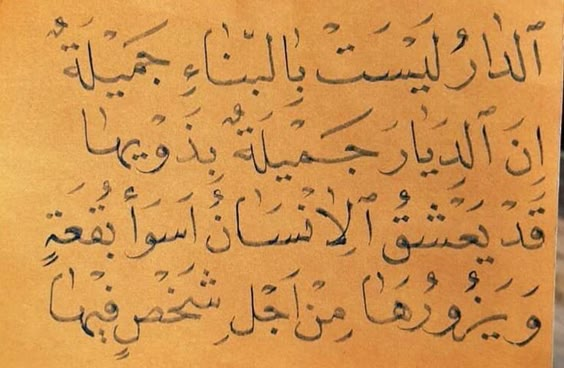 ٱلدَّارُ لَيْسَتْ بِالبِنَاءِ جَمِيْلَةٌ
اِنَ ٱلدِيَارَ جَمِيْلَةٌ بِذَوِيْهَا
قَدْ يَعْشَقُ ٱلاِنْسَانُ اَسَوَأَ بُقْعَةٍ
وَيَزُوْرُهَا مِنْ اَجْلِ شَخْصٍ فِيْهَا